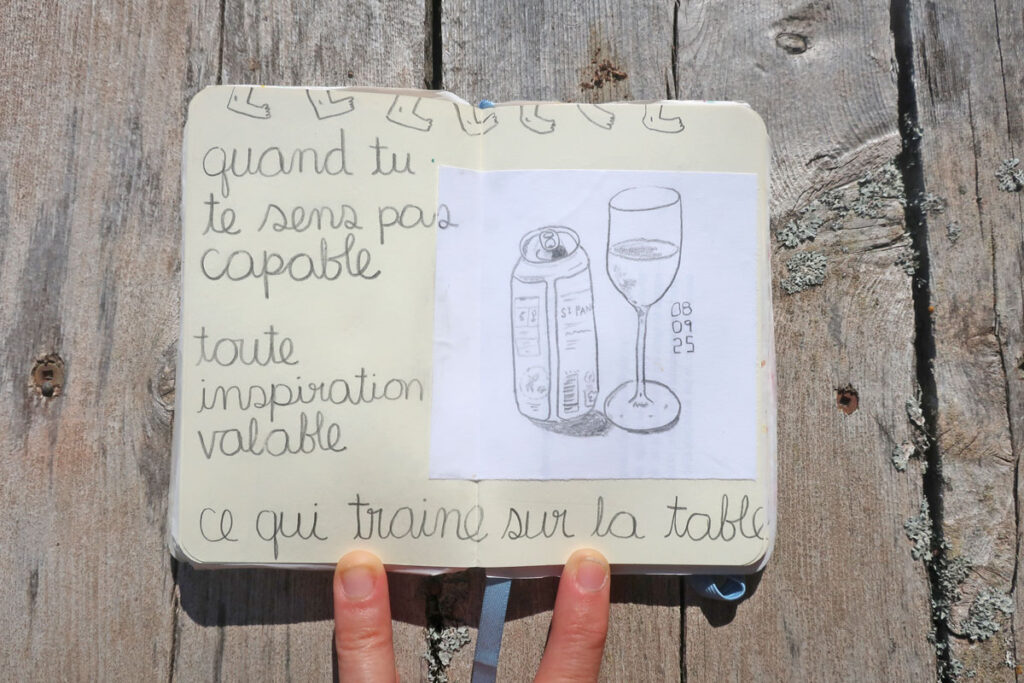 quand tu
te sens pas
capable
toute
inspiration
valable
ST PAN
08
09
25
ce qui traine sur la table